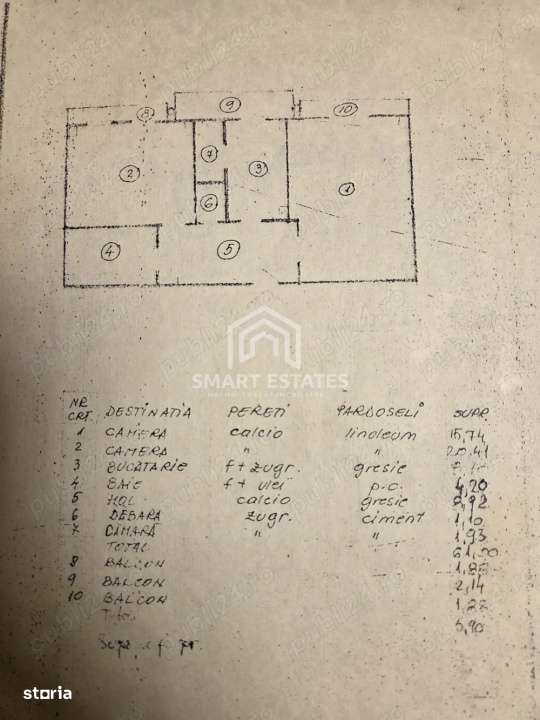 8 9 10
2 7 3 1
6
4 5
SMART ESTATES
NR. CRT. DESTINATIA PERETI PARDOSELI SUPR.
1 CAMERA calcio linoleum 15,74
2 CAMERA " " 20.41
3 BUCATARIE f+zugr. gresie
4 BAIE f+ulei p.c. 4,20
5 HOL calcio gresie 9,92
6 DEBARA zugr. ciment 1,10
7 CAMARĂ " " 1,93
TOTAL
8 BALCON
9 BALCON 2,14
10 BALCON
5,90
storia